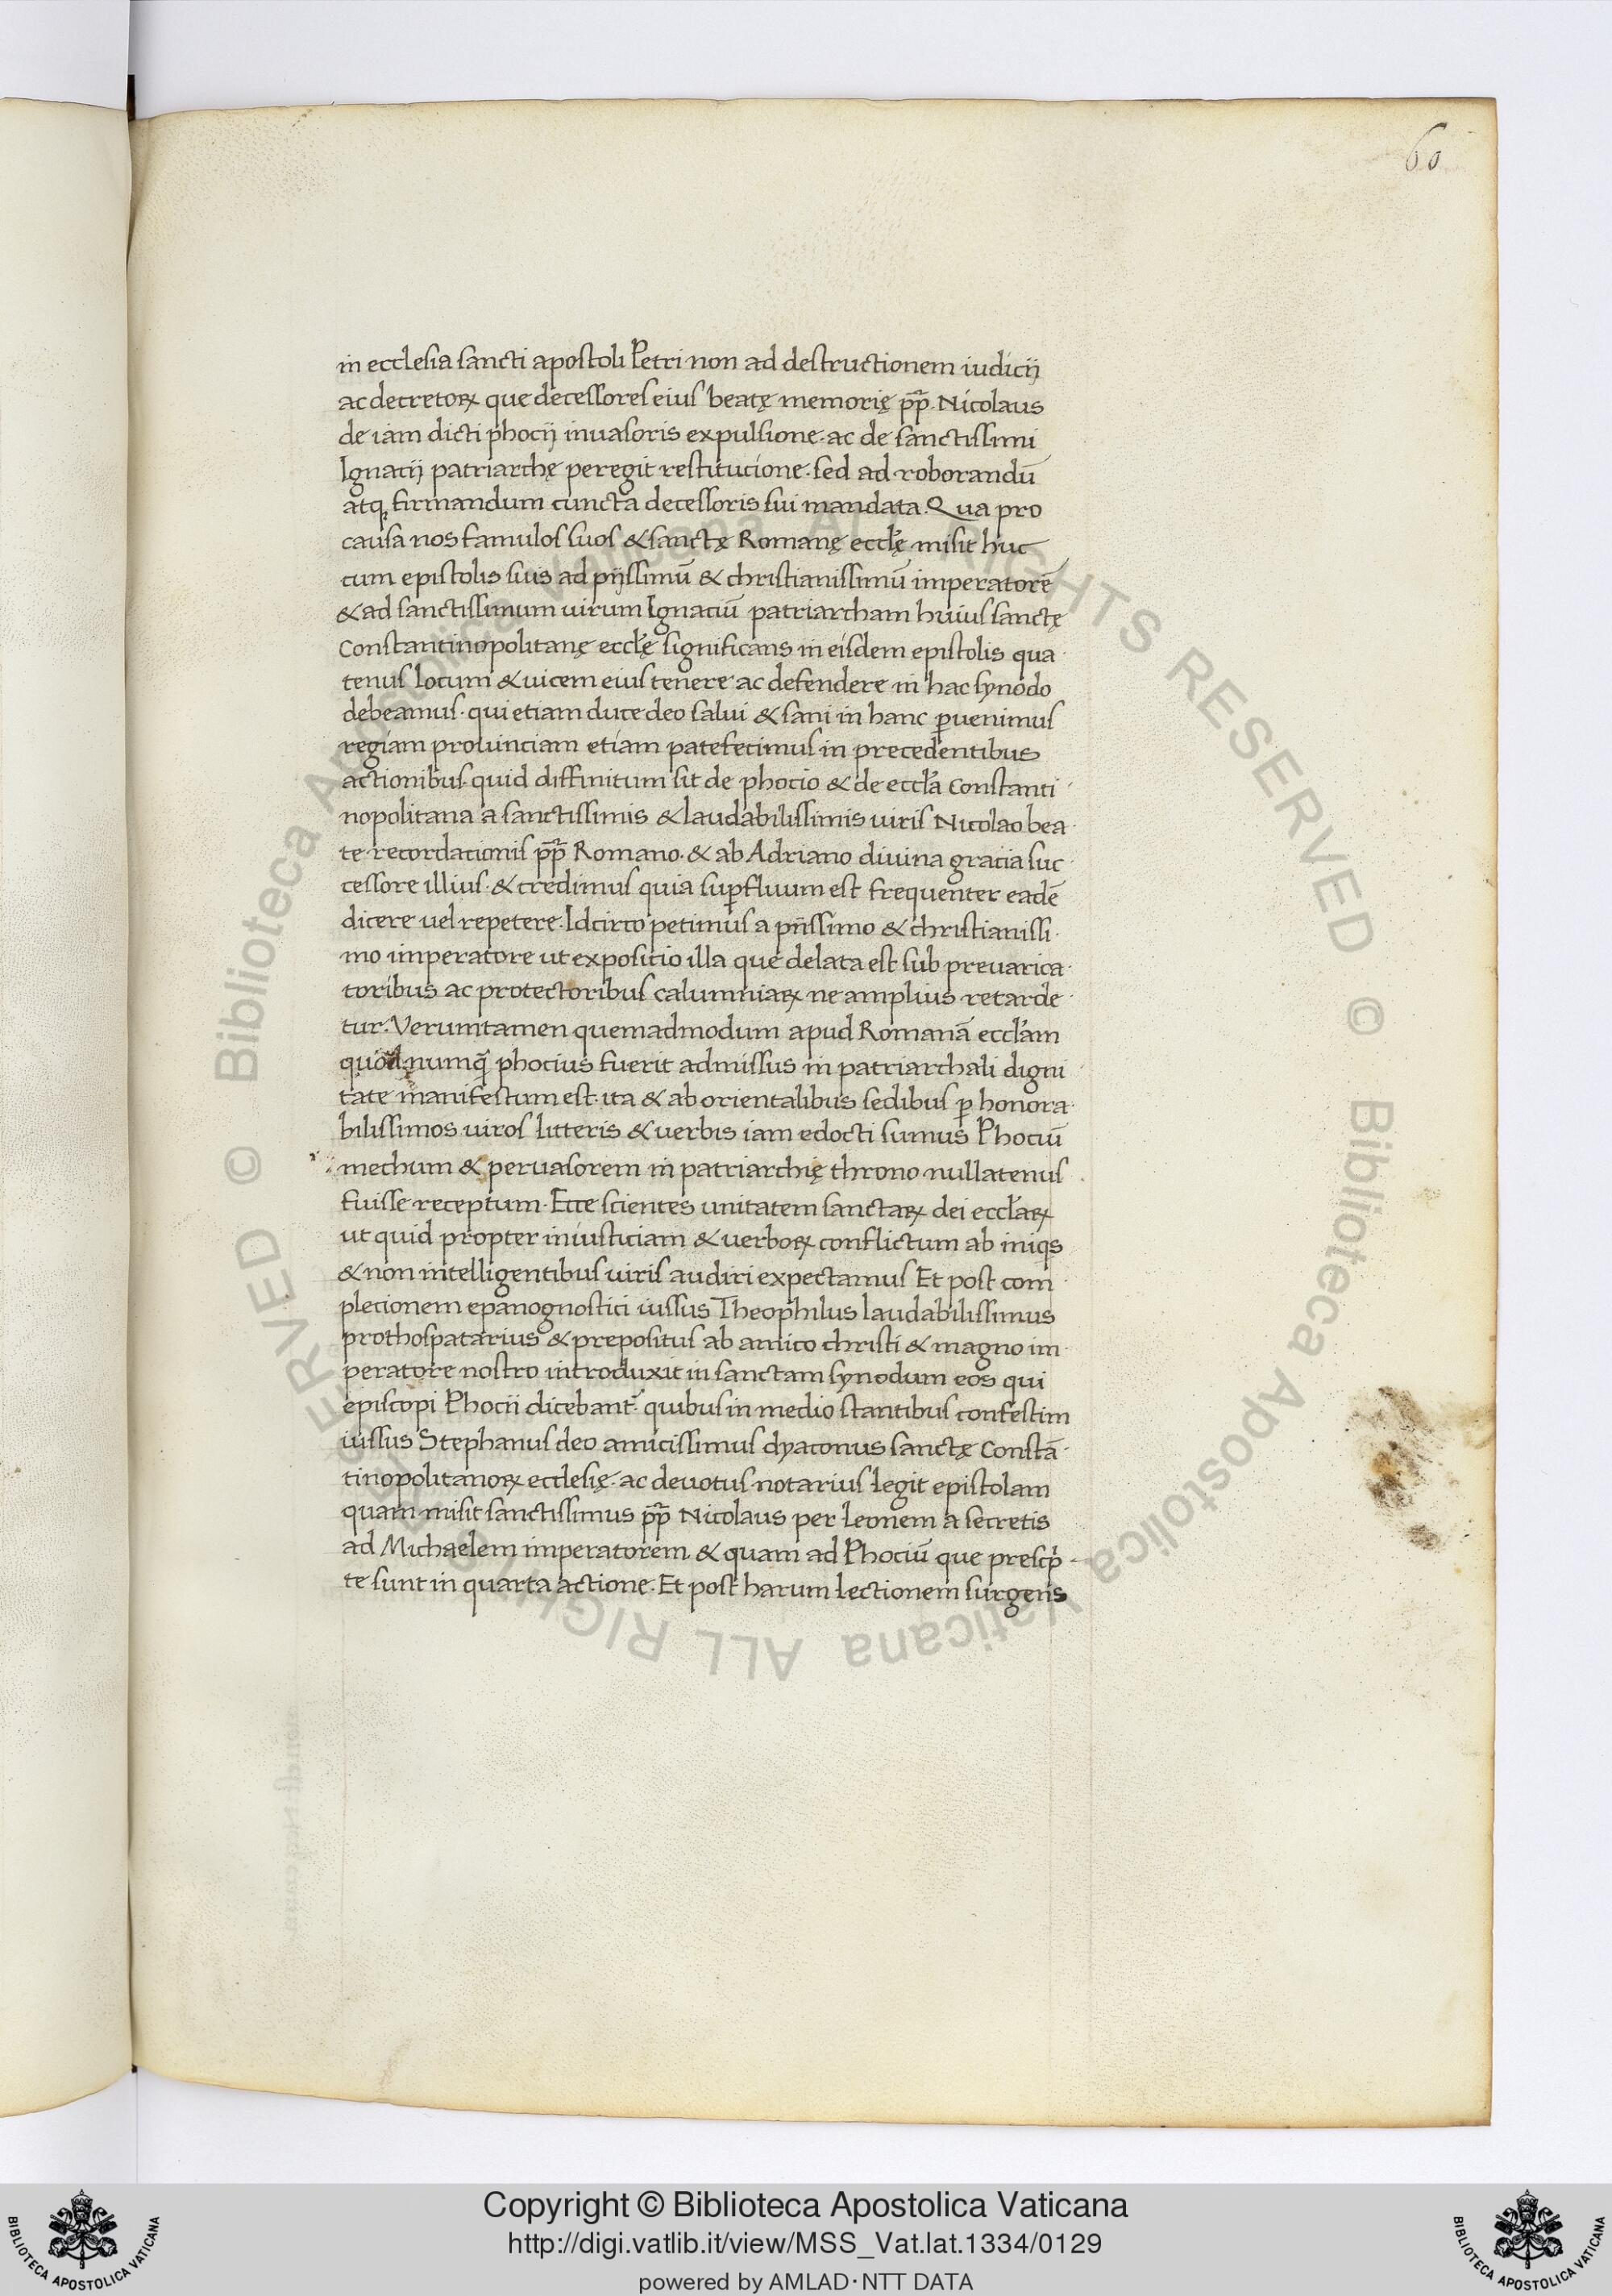 60
in ecclesia sancti apostoli Petri non ad destructionem iudicij
ac decretoꝝ que decessores eius beatę memorię p̅p̅. Nicolaus
de iam dicti phocij inuasoris expulsione. ac de sanctissimi
Ignacij patriarchę peregit restitucione. sed ad roborandū
atq; firmandum cuncta decessoris sui mandata. Qua pro
causa nos famulos suos & sanctę Romanę eccl̅ę misit huc
cum epistolis suis ad pijssimū & christianissimū imperatorē
& ad sanctissimum uirum Ignaciū patriarcham huius sanctę
Constantinopolitanę eccl̅ę significans in eisdem epistolis qua
tenus locum & uicem eius tenere ac defendere in hac synodo
debeamus. qui etiam duce deo salui & sani in hanc ꝑuenimus
regiam prouinciam etiam patefecimus in precedentibus
actionibus. quid diffinitum sit de phocio & de eccl̅a Constanti
nopolitana a sanctissimis & laudabilissimis uiris Nicolao bea
te recordacionis p̅p̅ Romano. & ab Adriano diuina gracia suc
cessore illius. & credimus quia suꝑfluum est frequenter eadē
dicere uel repetere. Idcirco petimus a piissimo & christianissi
mo imperatore ut exposicio illa que delata est sub preuarica
toribus ac protectoribus calumniaꝝ ne amplius retarde
tur. Verumtamen quemadmodum apud Romanā eccl̅am
quod numq̅ phocius fuerit admissus in patriarchali digni
tate manifestum est. ita & ab orientalibus sedibus ꝑ honora
bilissimos uiros litteris & uerbis iam edocti sumus Phociū
mechum & peruasorem in patriarchię throno nullatenus
fuisse receptum. Ecce scientes unitatem sanctaꝝ dei eccl̅aꝝ
ut quid propter iniusticiam & uerboꝝ conflictum ab iniqs
& non intelligentibus uiris audiri expectamus Et post com
plecionem epanognostici iussus Theophilus laudabilissimus
prothospatarius & prepositus ab amico christi & magno im
peratore nostro introduxit in sanctam synodum eos qui
episcopi Phocii dicebant̅. quibus in medio stantibus confestim
iussus Stephanus deo amicissimus dyaconus sanctę Constā
tinopolitanoꝝ ecclesię. ac deuotus notarius legit epistolam
quam misit sanctissimus p̅p̅ Nicolaus per Leonem a secretis
ad Michaelem imperatorem & quam ad Phociū que prescp̅
te sunt in quarta actione. Et post harum lectionem surgens
© Biblioteca Apostolica Vaticana ALL RIGHTS RESERVED © Biblioteca Apostolica Vaticana ALL RIGHTS RESERVED
Copyright © Biblioteca Apostolica Vaticana
http://digi.vatlib.it/view/MSS_Vat.lat.1334/0129
powered by AMLAD·NTT DATA
BIBLIOTECA APOSTOLICA VATICANA
BIBLIOTECA APOSTOLICA VATICANA